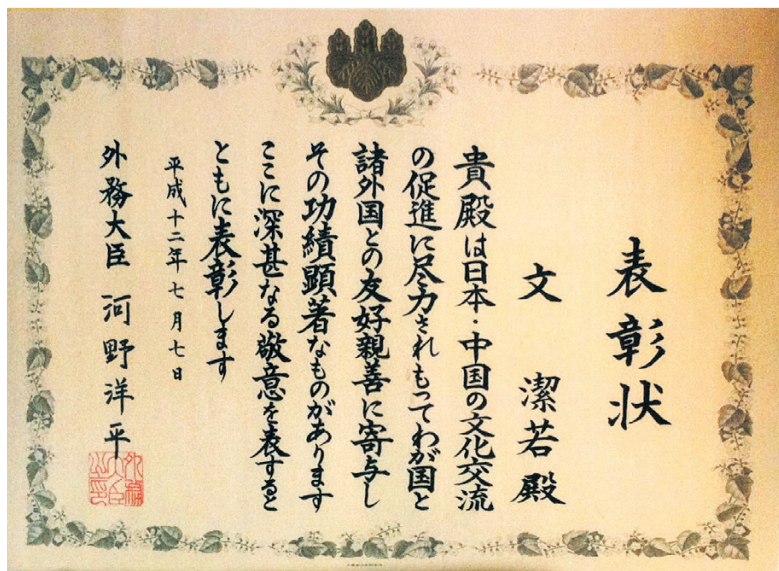 表彰状
文 潔若殿
貴殿は日本・中国の文化交流
の促進に尽力されもってわが国と
諸外国との友好親善に寄与し
その功績顕著なものがあります
ここに深甚なる敬意を表すると
ともに表彰します
平成十二年七月七日
外務大臣 河野洋平